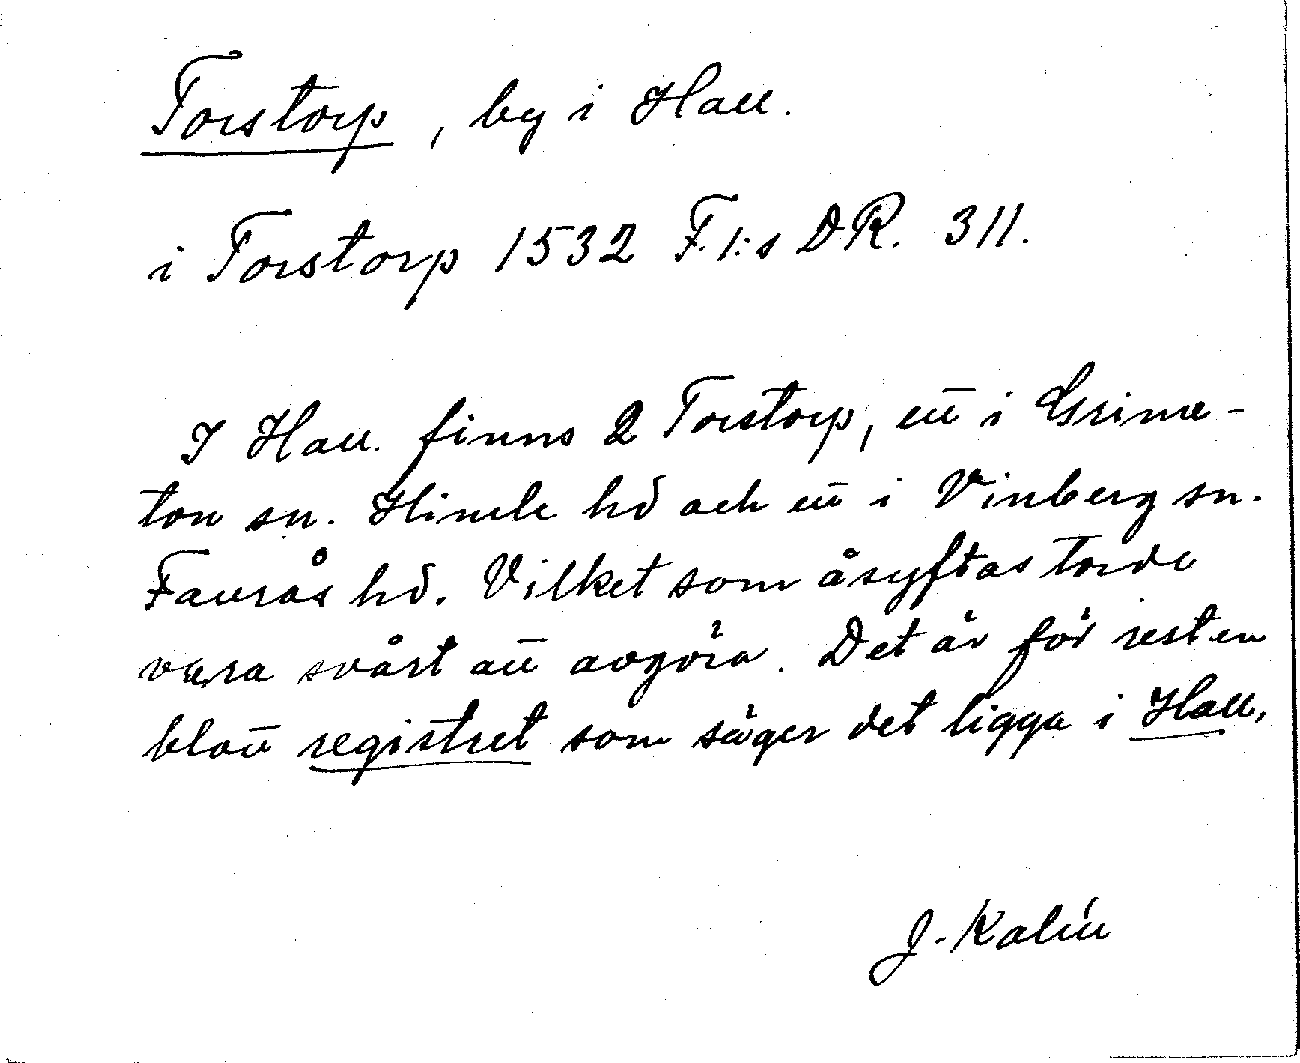 Torstorp, by i Hall.
i Torstorp 1532 F.1:s DR. 311.
I Hall. finns 2 Torstorp, ett i Grime-
ton sn. Himle hd och ett i Vinberg sn.
Faurås hd. Vilket som åsyftas torde
vara svårt att avgöra. Det är för resten
blott registret som säger det ligga i Hall.
J. Kalén